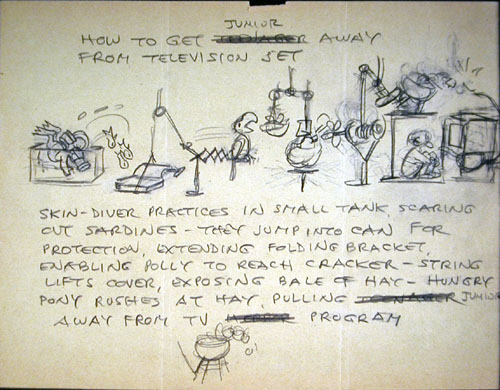 JUNIOR
HOW TO GET TEENAGER AWAY
FROM TELEVISION SET
SKIN-DIVER PRACTICES IN SMALL TANK, SCARING
OUT SARDINES - THEY JUMP INTO CAN FOR
PROTECTION, EXTENDING FOLDING BRACKET,
ENABLING POLLY TO REACH CRACKER - STRING
LIFTS COVER, EXPOSING BALE OF HAY - HUNGRY
PONY RUSHES AT HAY, PULLING TEENAGER JUNIOR
AWAY FROM TV PROGRAM